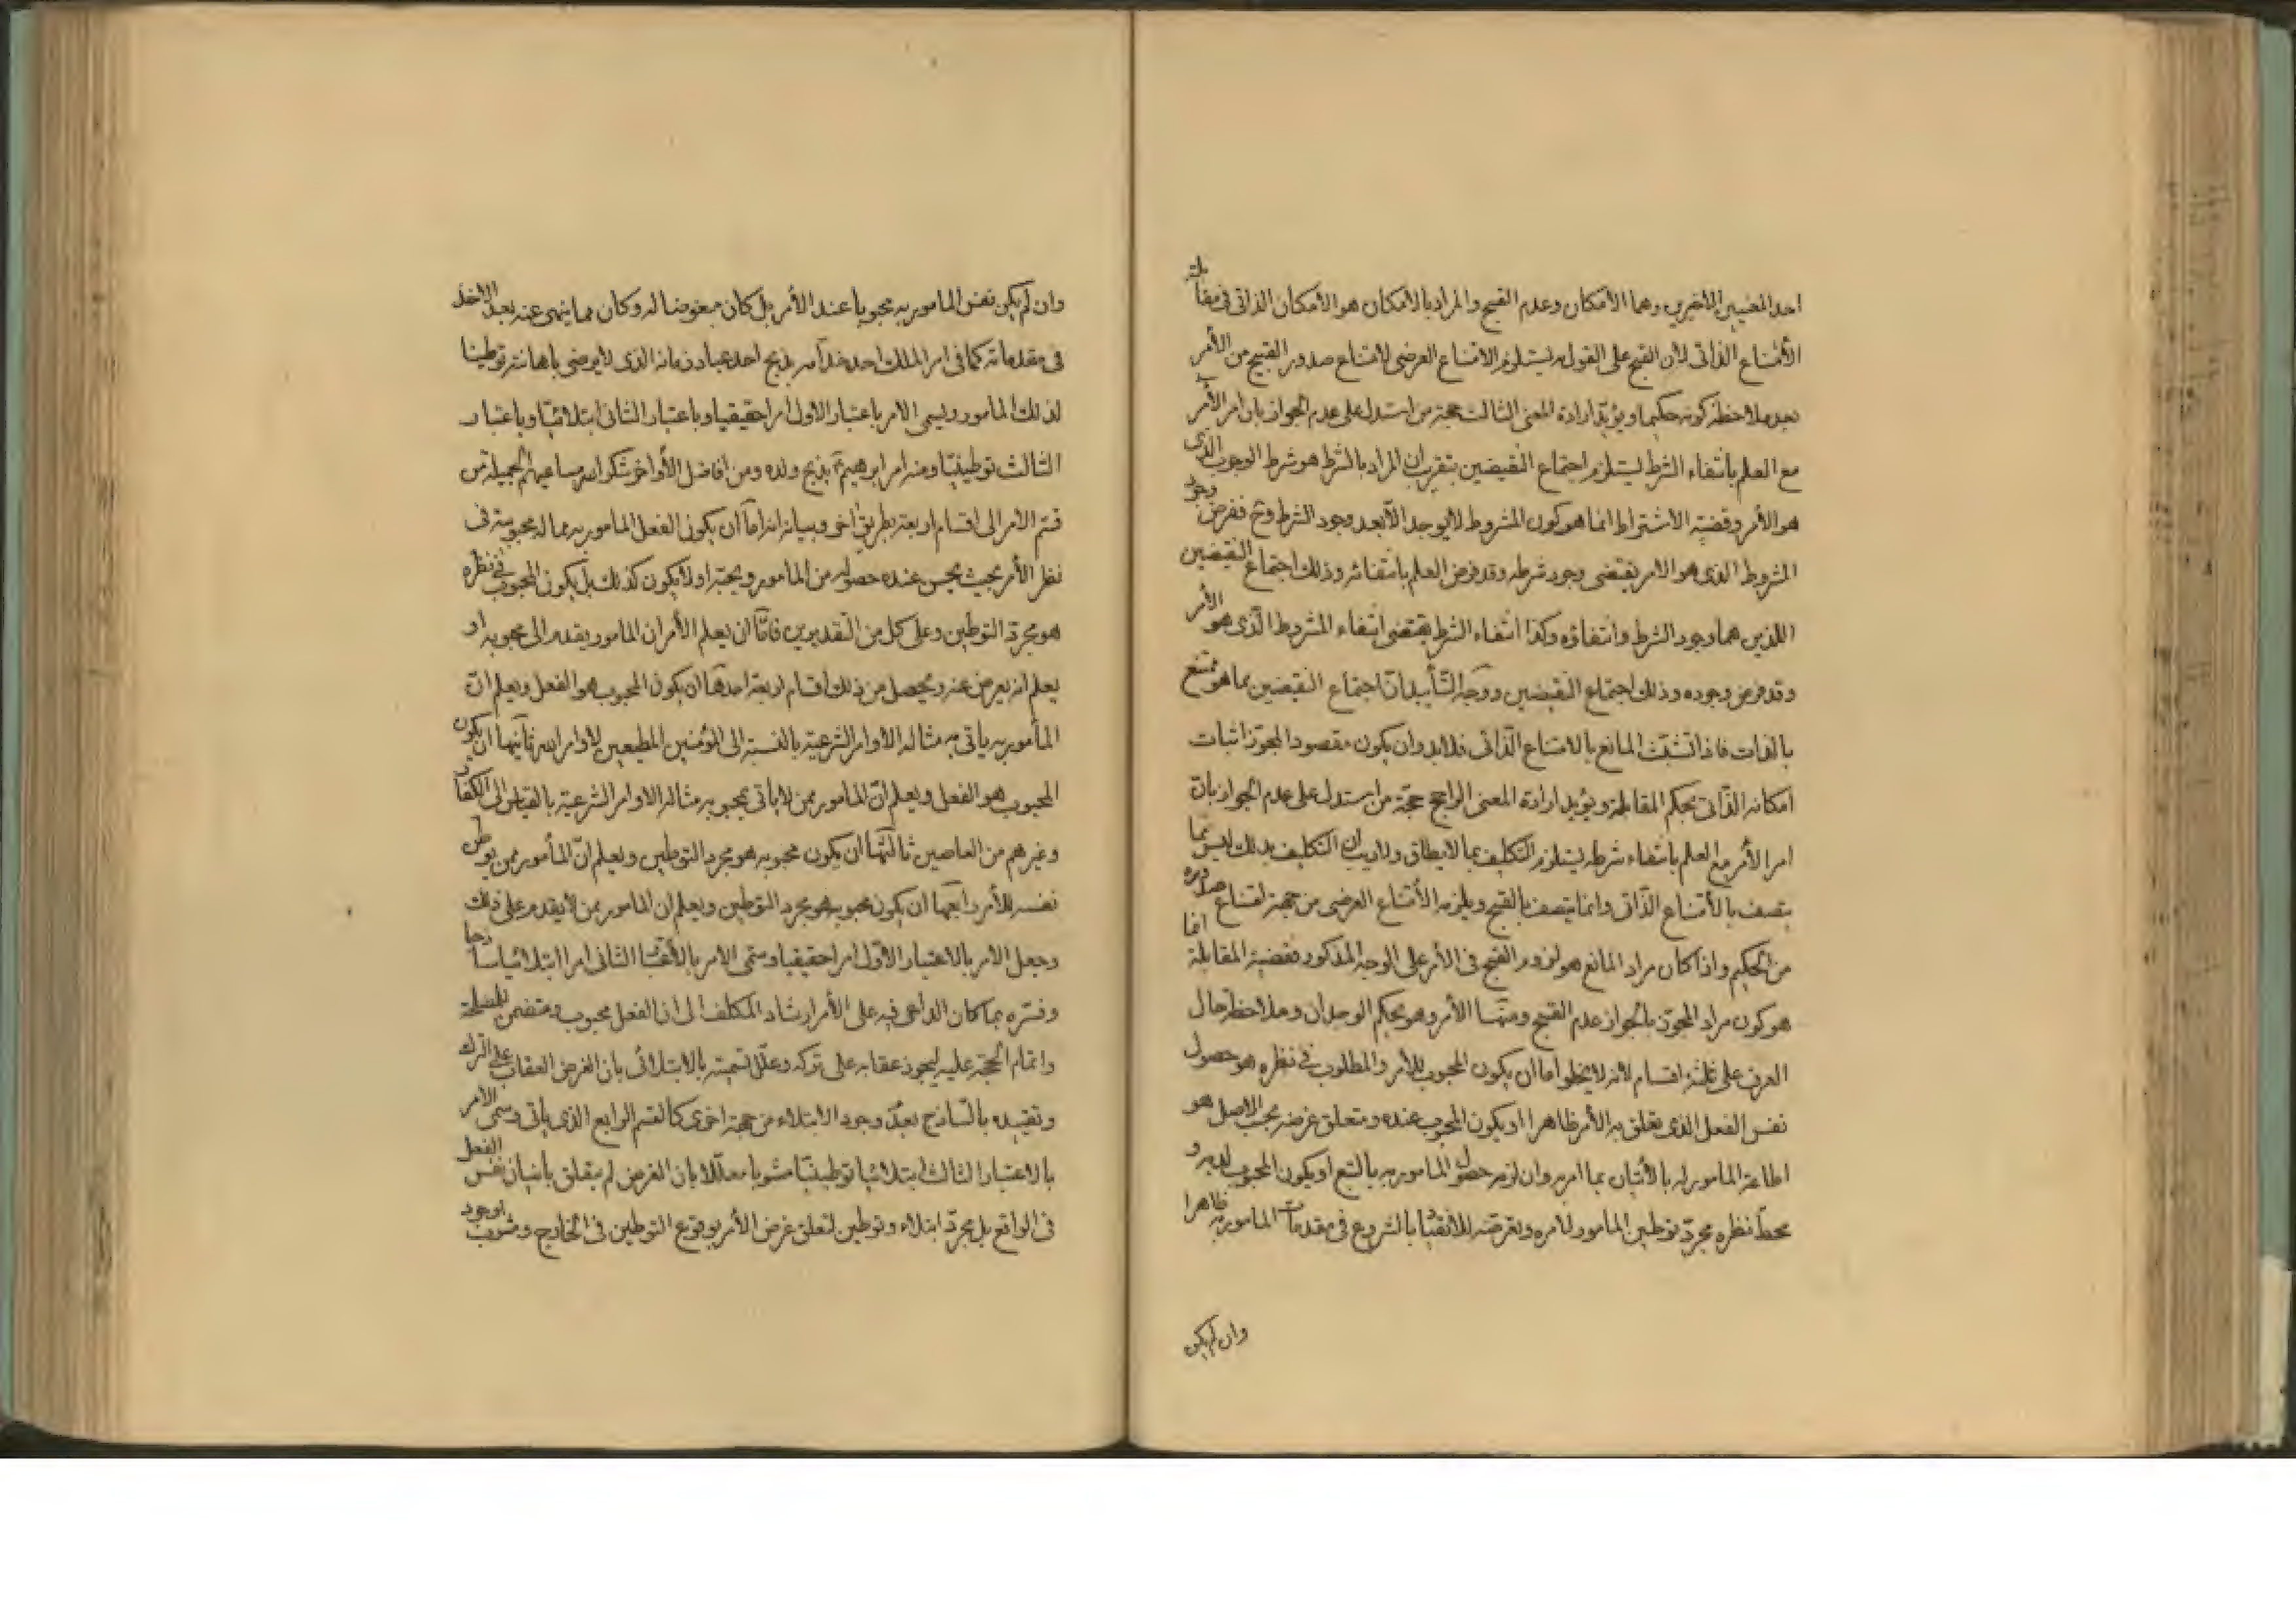 احد المعنيين الاخيرين وهما الامكان وعدم القبح والمراد بالامكان هو الامكان الذاتى فى مقابلة
الأمتناع الذاتى لان القبح على القول به يستلزم الامتناع العرضى لامتناع صدور القبيح من الأمر
بعد ملاحظة كونه حكيما ويؤيد ارادة المعنى الثالث حجة من استدل على عدم الجواز بان امر الأمر
مع العلم بانتفاء الشرط يستلزم اجتماع النقيضين بتقريب ان المراد بالشرط هو شرط الوجوب الذى
هو الأمر وقضية الاشتراط انما هو كون المشروط لايوجد الّا بعد وجود الشرط وح ففرض وجود
المشروط الذى هو الامر يقتضى وجود شرطه وقد فرض العلم بانتفائه وذلك اجتماع النقيضين
اللذين هما وجود الشرط وانتفاؤه وكذا انتفاء الشرط يقتضى انتفاء المشروط الّذى هو الأمر
وقد فرض وجوده وذلك اجتماع النقيضين ووجه التأييد انّ اجتماع النقيضين مما هو ممتنع
بالذات فاذا تشبّث المانع بالامتناع الذّاتى فلابد وان يكون مقصود المجوّز اثبات
امكانه الذّاتى بحكم المقابلة ويؤيد ارادة المعنى الرابع حجّة من استدل على عدم الجواز بانّ
امر الأمر مع العلم بانتفاء شرطه يستلزم التكليف بما لايطاق ولاريب ان التكليف بذلك ليس مما
يتصف بالأمتناع الذّاتى وانما يتصف بالقبح ويلزمه الأمتناع العرضى من جهة امتناع صدوره
من الحكيم واذا كان مراد المانع هو لزوم القبح فى الأمر على الوجه المذكور فقضية المقابلة
هو كون مراد المجوّز بالجواز عدم القبح ومنها الأمر وهو بحكم الوجدان وملاحظة حال
العرف على ثلثة اقسام لانه لايخلو اما ان يكون المحبوب للأمر والمطلوب فى نظره هو حصول
نفس الفعل الذى تعلق به الأمر ظاهرا او يكون المحبوب عنده ومتعلق غرضه بحسب الاصل هو
اطاعة المامور له بالأتيان بما امر به وان لزمه حصول المامور به بالتبع او يكون المحبوب لديه و
محطّ نظره مجرّد توطين المامور لامره وتعرضه للانقياد بالشروع فى مقدمات المامور به ظاهرا
وان لم يكن
وان لم يكن نفس المامور به محبوبا عند الأمر بل كان مبغوضا له وكان مما ينهى عنه بعد الاخذ
فى مقدماته كما فى امر الملك احد خدامه بذبح احد عباد زمانه الذى لايرضى باهانته توطينا
لذلك المامور ويسمى الامر باعتبار الاول امرا حقيقيا وباعتبار الثانى ابتلائيّا وباعتبار
الثالث توطينيّا ومنه امر ابرهيم ع بذبح ولده ومن افاضل الأواخر شكر الله مساعيهم الجميلة من
قسّم الامر الى اقسام اربعة بطريق اخر وبيانه انه امّا ان يكون الفعل المامور به مما له محبوبية فى
نظر الأمر بحيث يحسن عنده حصوله من المامور ويحبّه او لايكون كذلك بل يكون المحبوب فى نظره
هو مجرّد التوطين وعلى كل من التقديرين فامّا ان يعلم الأمر ان المامور يقدم الى محبوبه او
يعلم انه يعرض عنه ويحصل من ذلك اقسام اربعة احدها ان يكون المحبوب هو الفعل ويعلم انّ
المأمور به ياتى به مثاله الأوامر الشرعيّة بالنسبة الى المؤمنين المطيعين لاوامر الله ثانيها ان يكون
المحبوب هو الفعل ويعلم انّ المامور ممن لاياتى بمحبوبه مثاله الاوامر الشرعيّة بالقياس الى الكفار
وغيرهم من العاصين ثالثها ان يكون محبوبه هو مجرد التوطين ويعلم انّ المأمور ممن يوطن
نفسه للأمر رابعها ان يكون محبوبه هو مجرد التوطين ويعلم ان المامور ممن لايقدم على ذلك
وجعل الامر بالاعتبار الأوّل امرا حقيقيا وسمّى الامر بالأعتبار الثانى امرا ابتلائيا ساذجا
وفسّره بما كان الداعى فيه على الأمر ارشاد المكلف الى ان الفعل محبوب ومتضمن للمصلحة
واتمام الحجّة عليه ليجوز عقابه على تركه وعلّل تسميته بالابتلائى بان الغرض العقاب على الترك
وتقييده بالسّاذج بعدم وجود الابتلاء من جهة اخرى كالقسم الرابع الذى ياتى وسمّى الامر
بالاعتبار الثالث ابتلائيا توطينيّا مشوبا معلّلا بان الغرض لم يتعلق باتيان نفس الفعل
فى الواقع بل مجرّد ابتلاء وتوطين لتعلق غرض الأمر بوقوع التوطين فى الخارج ومشوب لوجود